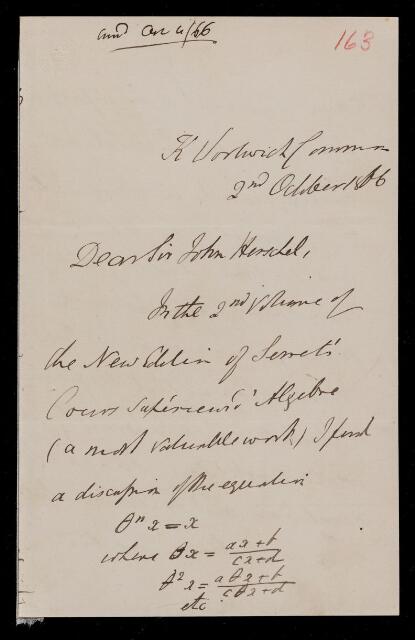 Oct 4/66
163
K Woolwich Common
2nd October 1866
Dear Sir John Herschel,
In the 2nd Volume of
the New Edition of Serret's
Cours Supérieur d'Algebre
(a most valuable work) I find
a discussion of the equation
θⁿx = x
where θx = (ax+b)/(cx+d)
θ²x = (aθx+b)/(cθx+d)
etc